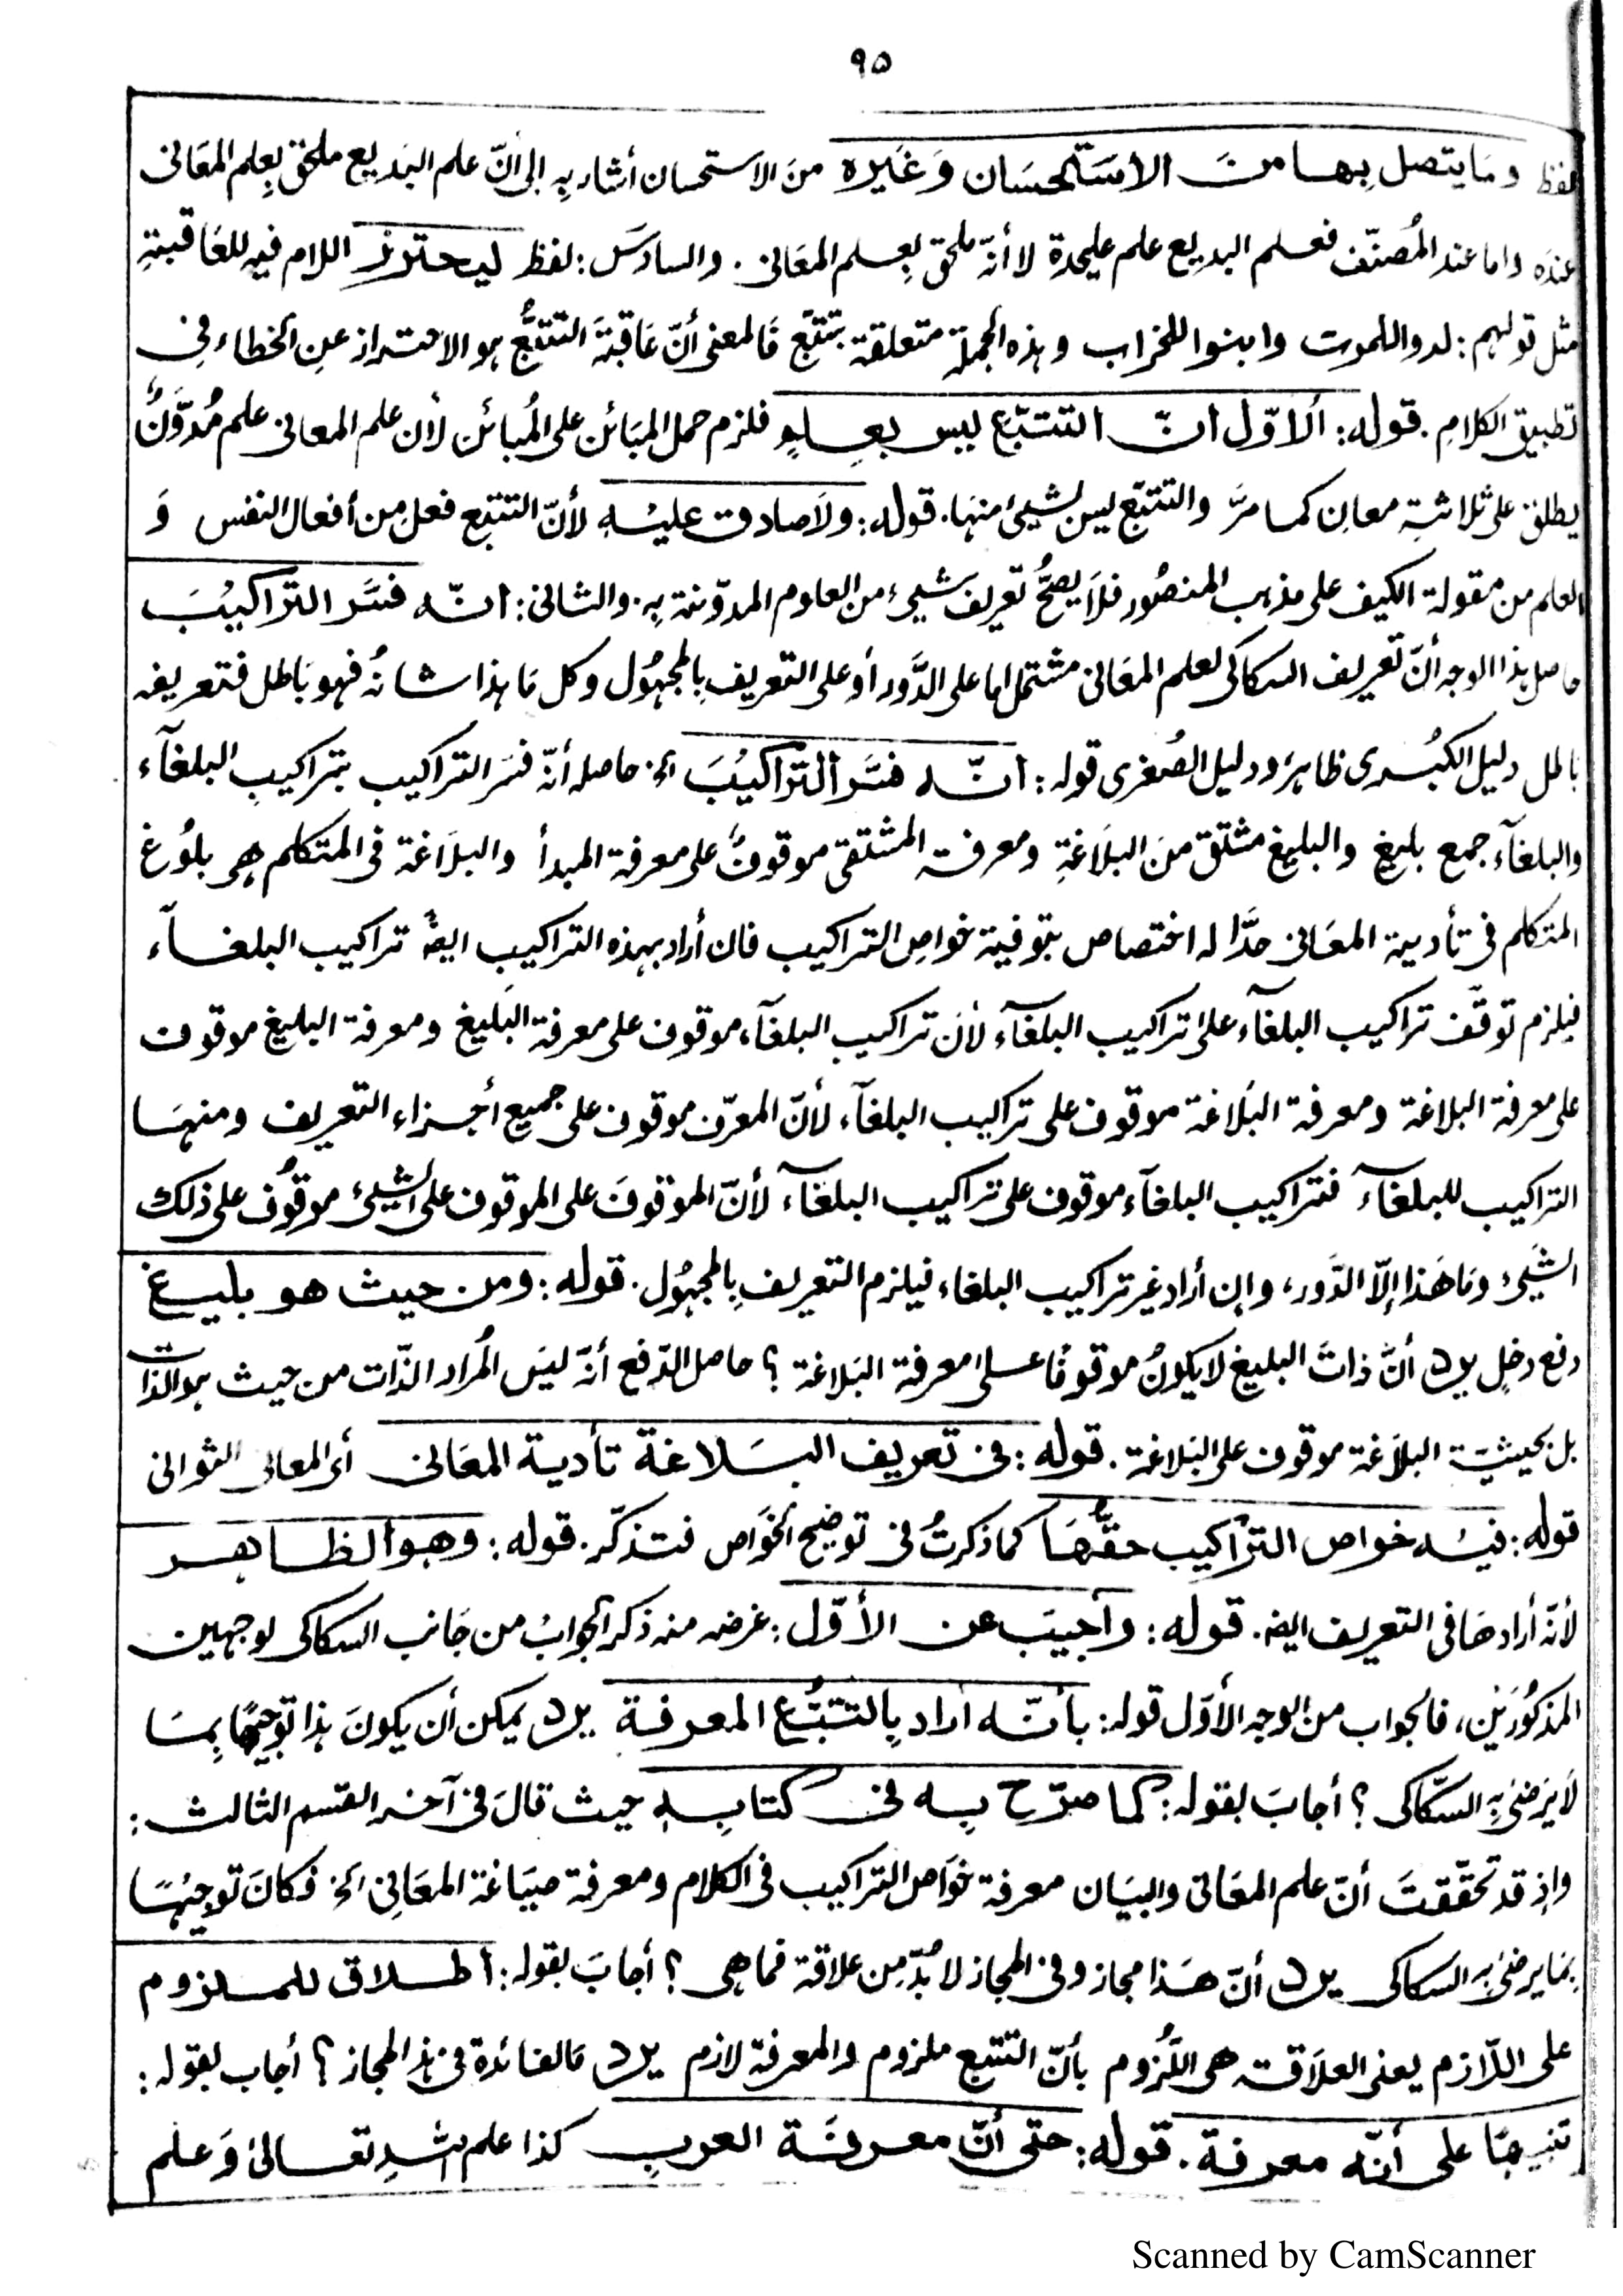 ٩٥
لفظ ومَا يتصل بِهَا منَ الاسْتحسَان وَغَيره منَ الاستحسان أشار بِه إلى أنّ علم البَديع ملحق بِعِلم المعَانى
عندَه واما عند المُصنّف فعلم البديع علم عليحدة لا أنّه ملحق بِعلم المعَانى. والسادسَ: لفظ ليحترز اللام فيه للعَاقبةِ
مثل قولهم: لدوا للموت وابنوا للخراب وهذه الجملة متعلقة بتتبّع فَالمعنى أنّ عَاقبَةَ التتبُّع هو الاحتراز عنِ الخطاء فِى
تطبيق الكلامِ. قوله: ألاوّل انّ التتبّع ليس بعِلمٍ فلزم حمل المبَائن على المُبائن لأن علم المعانى علم مُدوَّنٌ
يطلق على ثلاثةِ معانٍ كما مرَّ والتتبّع ليسَ لشيئ منهَا. قوله: ولاَصادق عليْهِ لأنّ التتبع فعل من أفعال النفس وَ
العلم من مقولة الكيف على مذهب المنصُور فلاَ يصحُّ تعريف شيئ من العلوم المدوّنة بِه. والثانى: انّه فسَّر التراكيْبَ
حاصل هذا الوجه أنّ تعريف السكاكى لعلم المعَانى مشتمل اما على الدَّور أو على التعريف بِالمجهُول وكل مَا هذا شانهُ فهو بَاطل فتعريفه
باطل دليل الكبُرى ظاهرَ ودليل الصُغرى قوله: انّه فسَّر ألتراكيْبَ الخ حاصله أنّ فسّر التراكيب بتراكيبِ البلغآء
والبلغآء جمع بليغ والبليغ مشتق منَ البلاَغةِ ومعرفة المشتقى موقوفٌ على معرفة المبدأ والبلاَغة فى المتكلم هِى بلوُغ
المتكلم فى تأدية المعَانى حدَّا له اختصاص بتوفية خواص التراكيب فان أراد بهذه التراكيب ايضًا تراكيب البلغآء
فيلزم توقّف تراكيب البلغآء على تراكيب البلغآء لأنّ تراكيب البلغآء موقوف على معرفة البَليغ ومعرفة البليغ موقوف
على معرفة البلاغة ومعرفة البَلاغة موقوف على تراكيب البلغآء لأنّ المعرّف موقوف على جميع أجزاء التعريف ومنهَا
التراكيب للبلغآء فتراكيب البلغآء موقوف على تراكيب البلغآء لأنّ الموقوفَ على الموقوف على الشيئ موقُوف على ذلك
الشَيئ ومَا هَذا إلّا الدَّور، وإن أراد غير تراكيب البلغاء فيلزم التعريف بِالمجهُول. قوله: ومن حيث هو بليغ
دفع دخلٍ يرد أنَّ ذاتَ البليغ لا يكونُ موقوفًا على معرفة البَلاغة ؟ حاصل الدّفع أنّه ليسَ المُراد الذّات من حيث هو الذات
بل بحيثيّة البلاَغة موقوف على البَلاغة. قوله: فى تعريف البَلاغة تأدية المعَانى أى المعانى الثوانى
قوله: فيْه خواص الترَّاكيب حقَّهَا كما ذكرتُ فى توضيح الخَواص فتذكّر. قوله: وهو الظاهر
لأنّه أرادهَا فى التعريف ايضا. قوله: وأجيبَ عن الأوّل: غرضه منه ذكر الجوابُ من جَانب السكاكى لوجهين
المذكوُرَيْن، فالجواب من الوجه الأوّل قوله: بأنّه اراد بِالتتبُّع المعرفة يرد يمكن أن يكونَ هذا توجيهًا بِمَا
لاَ يَرضٰى بِه السّكاكى ؟ أجابَ بقوله: كما صرّح بِه فى كتابِه حيث قالَ فى آخر القسم الثالث:
وإذ قد تحقّقتَ أنّ علم المعَانى والبيَان معرفة خوَاص التراكيب فى الكلام ومعرفة صيَاغة المعَانِى الخ فكانَ توجيْهًا
بِمَا يرضٰى بِه السكاكى يرد أنّ هَذا مجاز وفى المجاز لا بُدَّ من علاقة فما هِى ؟ أجابَ بقوله: أطلاق للملزوم
على اللّازم يعنى العلاَقة هِى اللُّزوم بأنّ التتبع ملزوم والمعرفة لازم يرد مَا الفائدة فى هذ المجاز ؟ أجاب بقوله:
تنبيهًا على أنّه معرفة. قوله: حتى أنّ معرفَة العربِ كذا علم اللهِ تعالىٰ وَعلم
Scanned by CamScanner